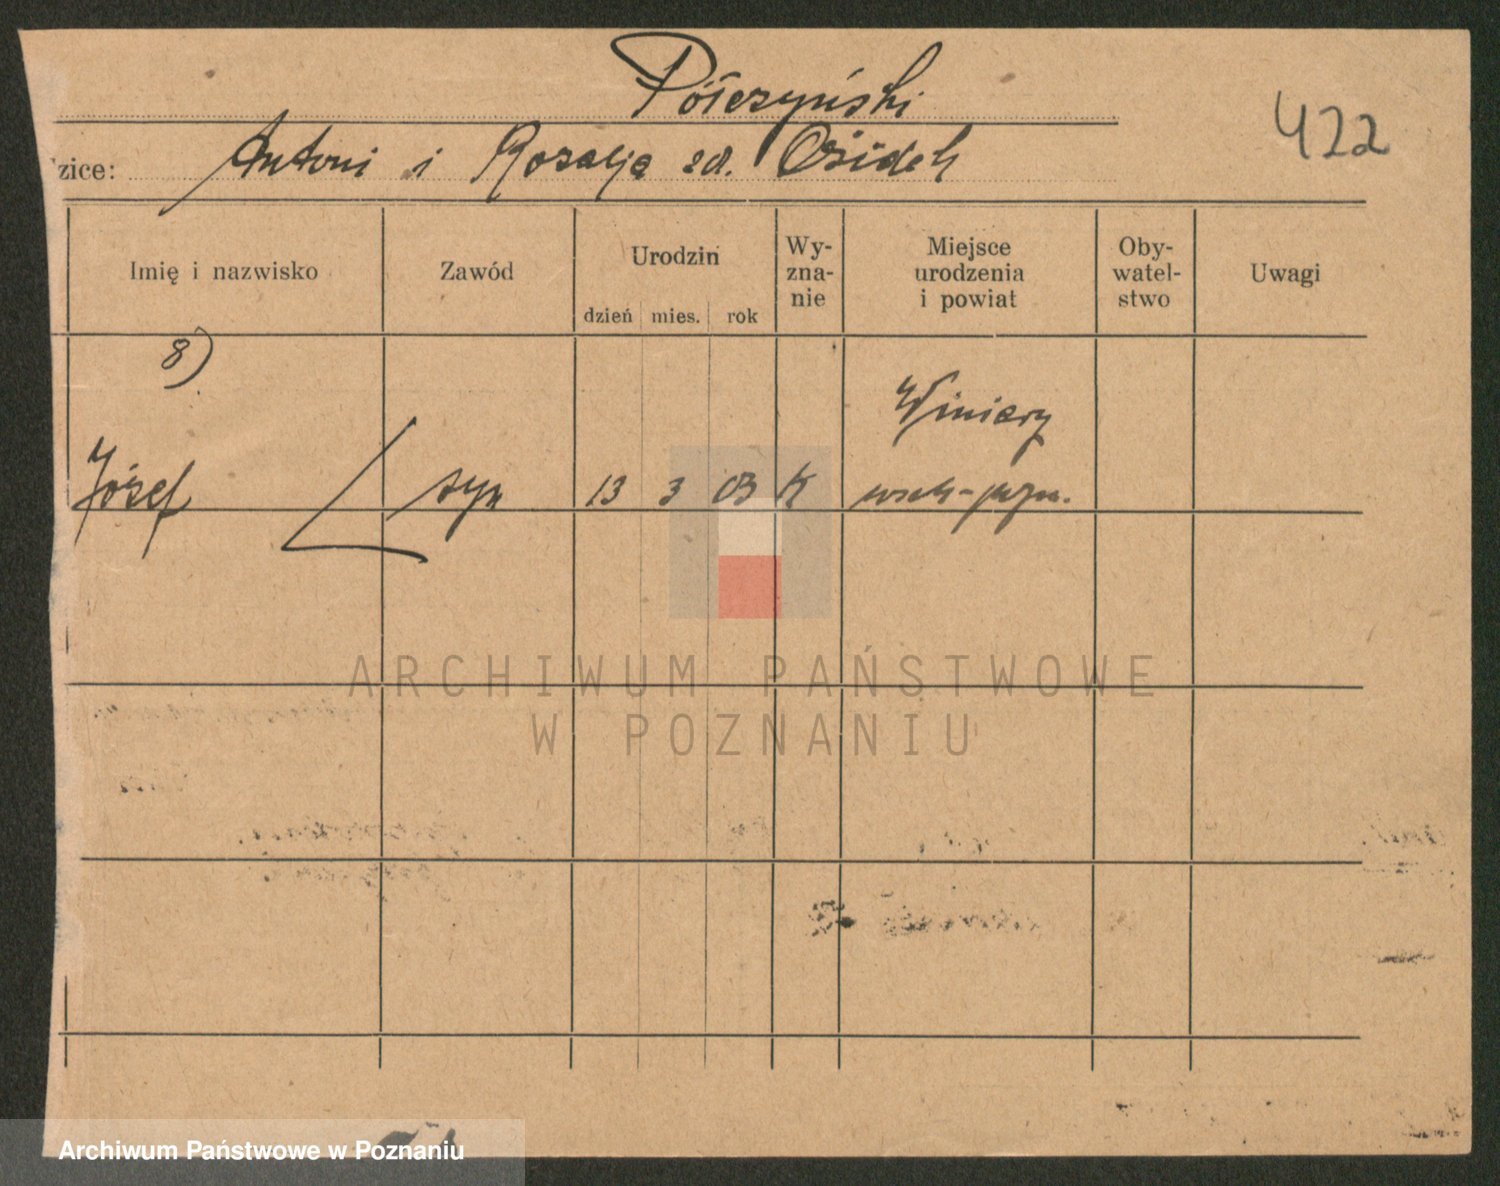 Półczyński
422
zice: Antoni i Rozalja zd. Osidek
Imię i nazwisko
Zawód
Urodzin
dzień mies. rok
Wy-
zna-
nie
Miejsce
urodzenia
i powiat
Oby-
watel-
stwo
Uwagi
8)
Winiary
Józef syn 13 3 03 K
ARCHIWUM PAŃSTWOWE
W POZNANIU
Archiwum Państwowe w Poznaniu